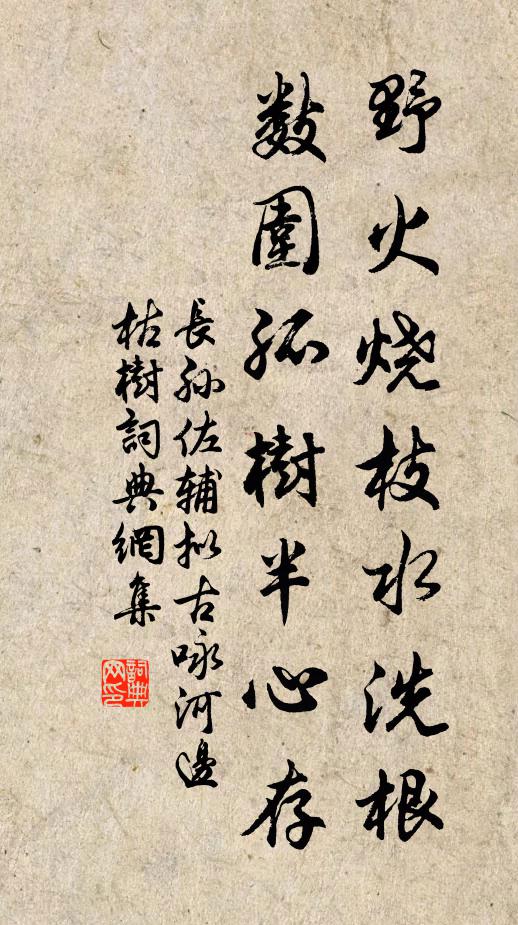 野火烧枝水洗根
数围孤樹半心存
長孙佐辅拟古咏河邊
枯樹詞典網集
詞典
网印